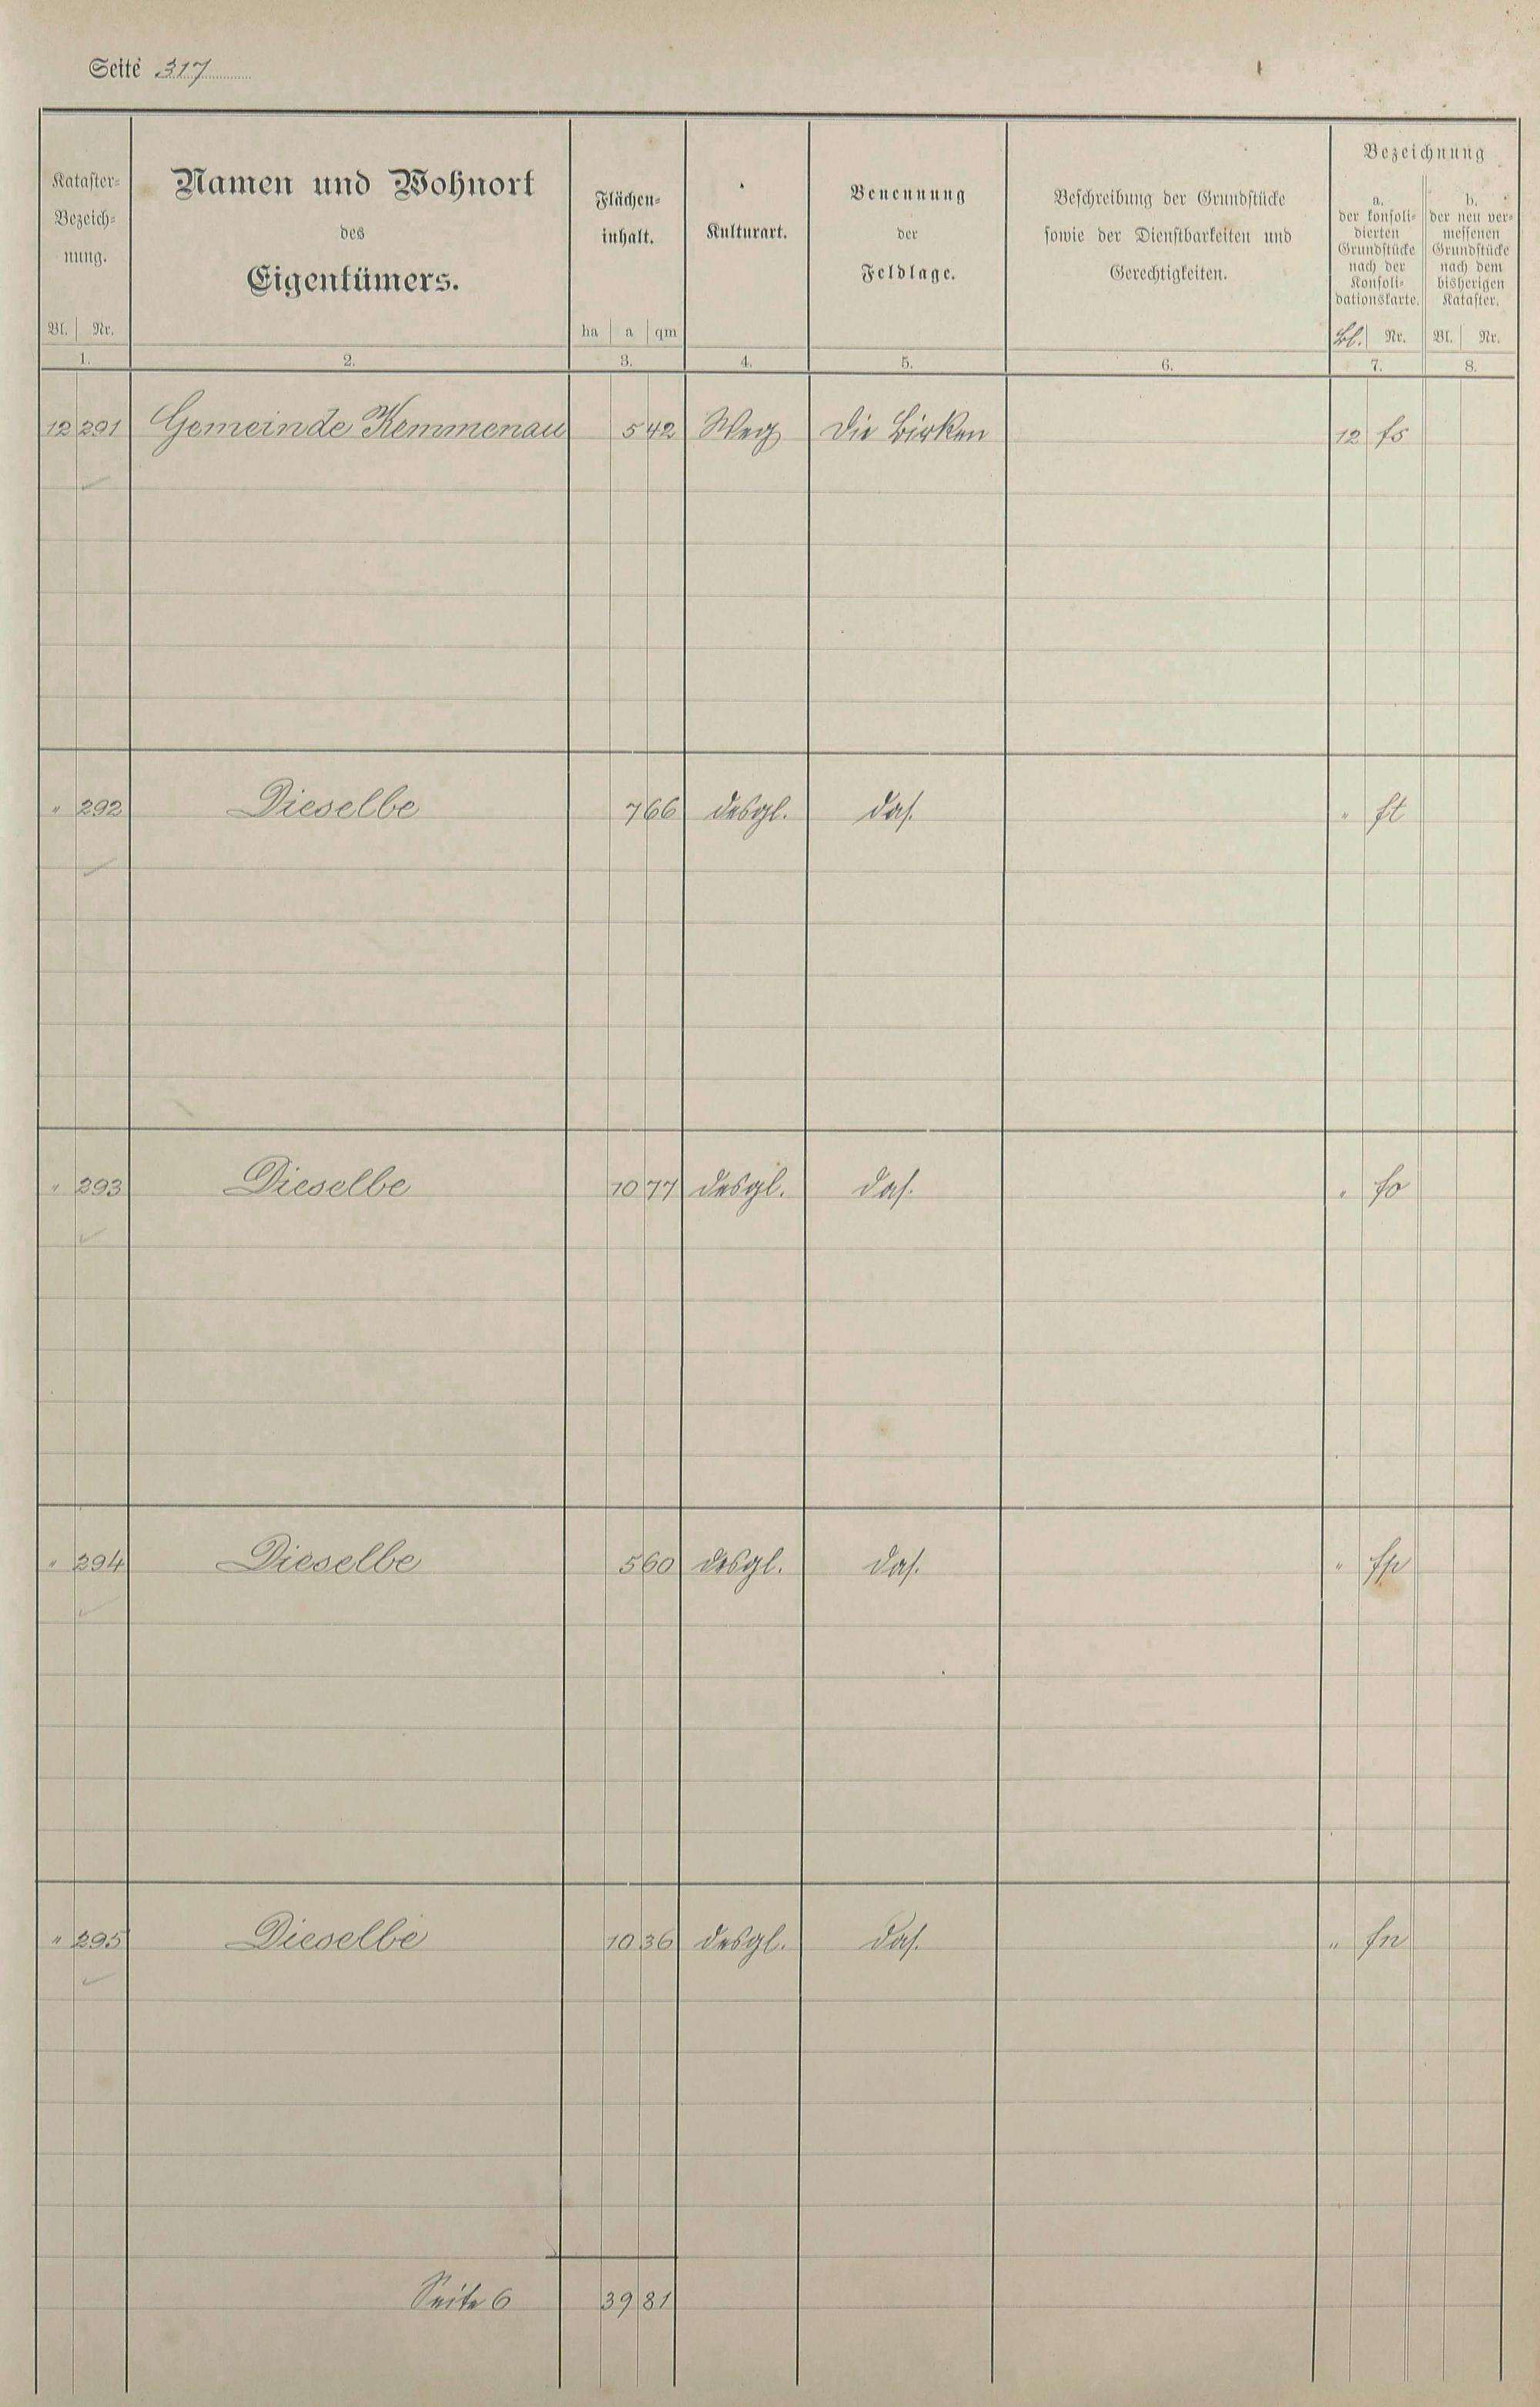 Seite 317
Kataster-
Bezeich-
nung.
Bl. Nr.
1.
Namen und Wohnort
des
Eigentümers.
2.
Flächen-
inhalt.
ha a qm
3.
Kulturart.
4.
Benennung
der
Feldlage.
5.
Beschreibung der Grundstücke
sowie der Dienstbarkeiten und
Gerechtigkeiten.
6.
Bezeichnung
a.
der konsoli-
dierten
Grundstücke
nach der
Konsoli-
dationskarte.
Bl. Nr.
7.
b.
der neu ver-
messenen
Grundstücke
nach dem
bisherigen
Kataster.
Bl. Nr.
8.
12 291 Gemeinde Kemmenau 5 42 Weg Die Birken 12 fs
" 292 Dieselbe 7 66 desgl. das. " ft
" 293 Dieselbe 10 77 desgl. das. " fo
" 294 Dieselbe 5 60 desgl. das. " fp
" 295 Dieselbe 10 36 desgl. das. " fn
Seite 6 39 81